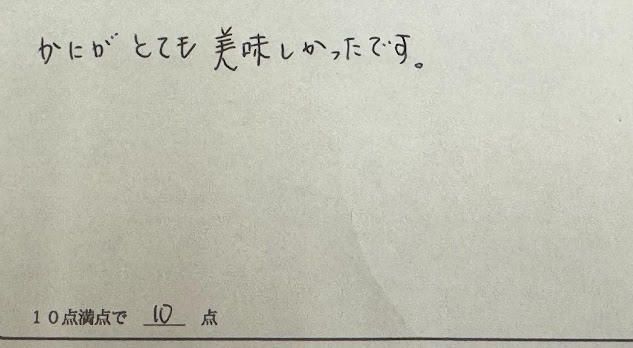 かにがとても美味しかったです。
10点満点で 10 点